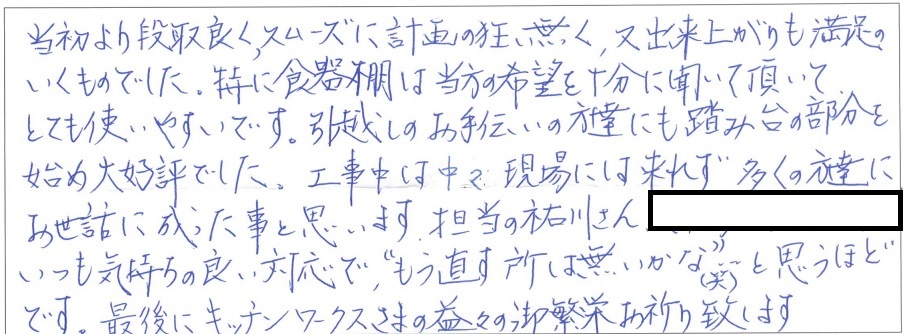 当初より段取良く、スムーズに計画の狂い無く、又出来上がりも満足の
いくものでした。特に食器棚は当方の希望を十分に聞いて頂いて
とても使いやすいです。引越しのお手伝いの方達にも踏み台の部分を
始め大好評でした。工事中は中々現場には来れず多くの方達に
お世話に成った事と思います。担当の祐川さん、
いつも気持ちの良い対応で、"もう直す所は無いかな"(笑)と思うほど
です。最後にキッチンワークスさまの益々の御繁栄お祈り致します